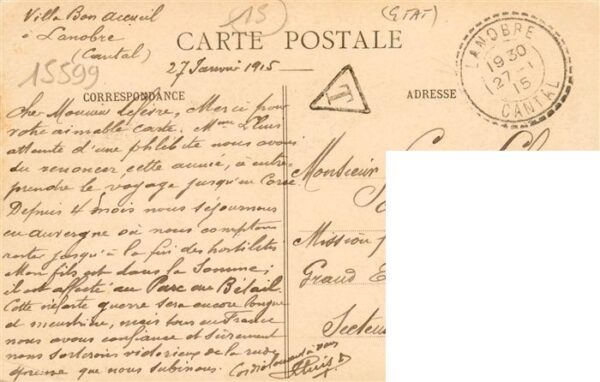 Villa Bon Accueil
à Lanobre
(Cantal)
15
(GTAT)
15599
CARTE POSTALE
27 Janvier 1915
CORRESPONDANCE
ADRESSE
LANOBRE
19 30
27 -1
15
CANTAL
T
Cher Monsieur Lefèvre, Merci pour
votre aimable carte. Mme
atteinte d'une phlébite nous avons
du renoncer cette année, à entre-
prendre le voyage jusqu'en Corse
Depuis 4 mois nous séjournons
en auvergne où nous comptons
rester jusqu'à la fin des hostilités.
Mon fils est dans la Somme;
il est affecté au Parc au Bétail.
Cette néfaste guerre sera encore longue
et meurtrière, mais tous en France
nous avons confiance et sûrement
nous sortirons victorieux de la rude
épreuve que nous subissons. Cordialement à vous
Monsieur
Mission
Grand
Secteur